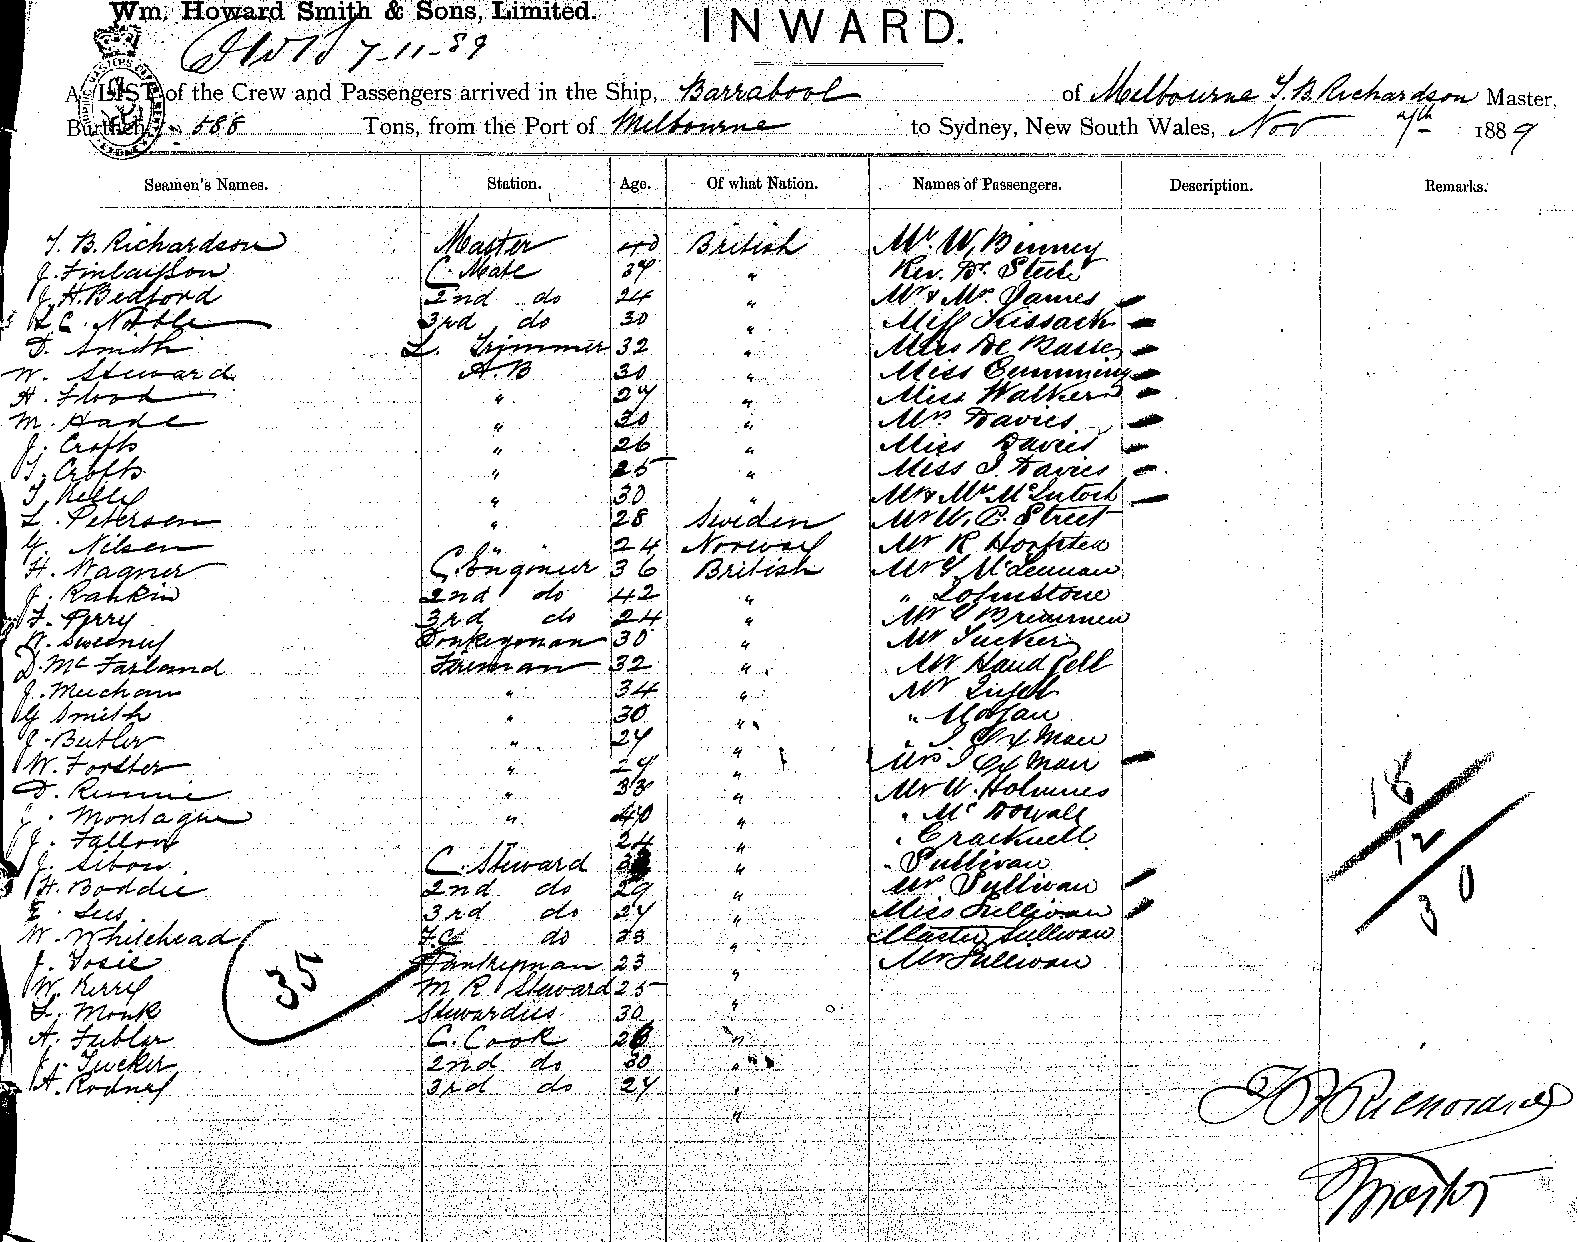 Wm. Howard Smith & Sons, Limited.
INWARD.
7-11-89
A LIST of the Crew and Passengers arrived in the Ship, Barrabool of Melbourne T. B. Richardson Master,
Burthen 588 Tons, from the Port of Melbourne to Sydney, New South Wales, Nov 7th 1889
Seamen's Names. Station. Age. Of what Nation. Names of Passengers. Description. Remarks.
T. B. Richardson Master 40 British Mr. W. Binney
J. Finlayson C. Mate 37 " Rev. Dr. Steel
J. H. Bedford 2nd do 24 " Mr & Mrs James
L. C. Noble 3rd do 30 " Miss Kissack
D. Smith L. Trimmer 32 "
W. Steward A.B 30 " Miss Cumming
H. Flood " 27 " Miss Walker
M. Hade " 30 " Mrs Davies
J. Crofts " 26 " Miss Davies
T. Crofts " 25 " Miss J. Davies
T. Kelly " 30 " Mr & Mrs McIntosh
L. Petersen " 28 Sweden Mr W. C. Street
G. Nilsen " 24 Norway Mr R
H. Wagner C. Engineer 36 British Mr
J. Rankin 2nd do 42 " " Johnstone
F. Perry 3rd do 24 " Mr
Sweeney Donkeyman 30 " Mr Tucker
D. McFarland Fireman 32 " Mr
J. Meecham " 34 " Mr
G Smith " 30 "
J. Butler " 27 "
W. Forster " 27 " Mrs
D. Rennie " 33 " Mr W. Holmes
J. Montague " 40 " " McDowall
J. Fallon 24 " " Cracknell
J. C. Steward " " Sullivan
H. Boddie 2nd do 29 " Mrs Sullivan
3rd do 27 " Miss Sullivan
W. Whitehead do 23 " Master Sullivan
J. 23 " Mr Sullivan
W. Kerry M R Steward 25 "
Monk Stewardess 30 "
A. C. Cook "
J. Tucker 2nd do 30 "
A. Rodney 3rd do 27 "
35
18
12
30
T B Richardson
Master